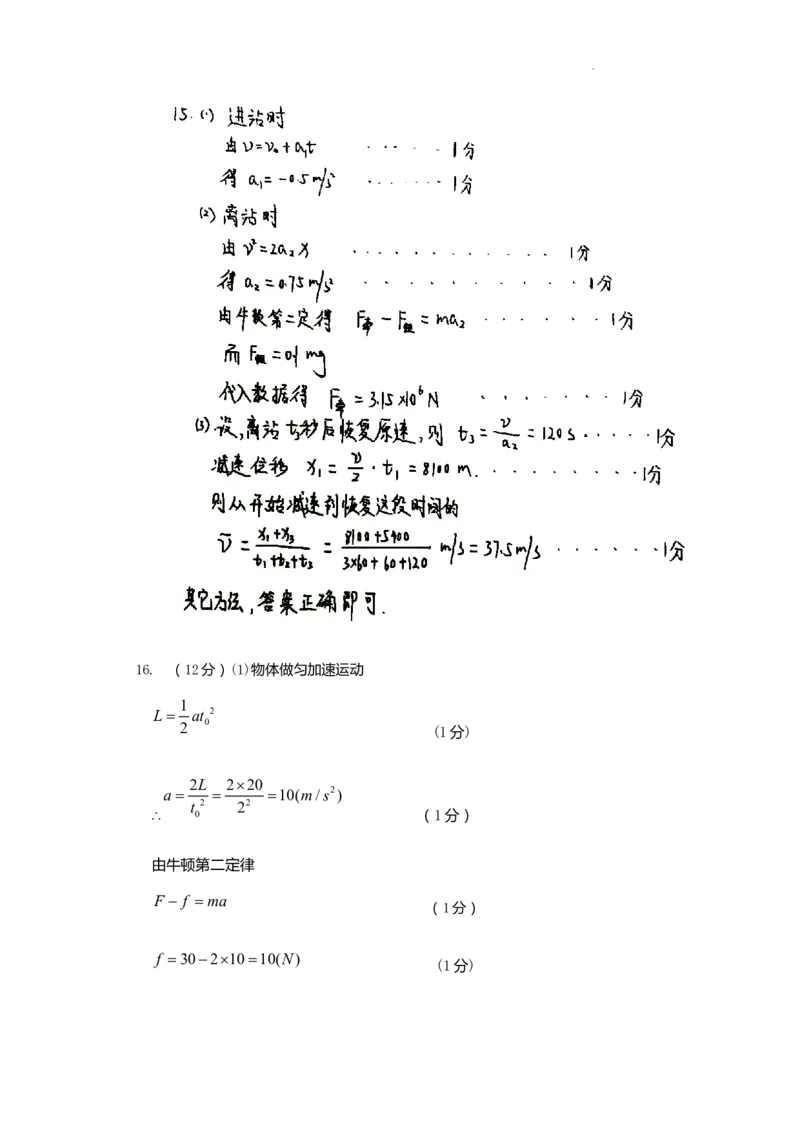 15.(1) 进站时
由 v=v₀+a₁t ······1分
得 a₁=-0.5m/s² ······1分
(2) 离站时
由 v²=2a₂x ············1分
得 a₂=0.75m/s² ··········1分
由牛顿第二定得 F牵-F阻=ma₂ ······1分
而 F阻=0.1mg
代入数据得 F牵=3.15×10⁶N ·······1分
(3) 设,离站t₃秒后恢复原速,则 t₃=v/a₂=120s·····1分
减速位移 x₁=v/2·t₁=8100m.········1分
则从开始减速到恢复这段时间的
v̄=(x₁+x₃)/(t₁+t₂+t₃)=(8100+5400)/(3×60+60+120) m/s=37.5m/s ······1分
其它方法,答案正确即可.
16. （12分）(1)物体做匀加速运动
L=1/2 at₀² (1分)
∴ a=2L/t₀²=2×20/2²=10(m/s²) （1分）
由牛顿第二定律
F-f=ma （1分）
f=30-2×10=10(N) (1分)